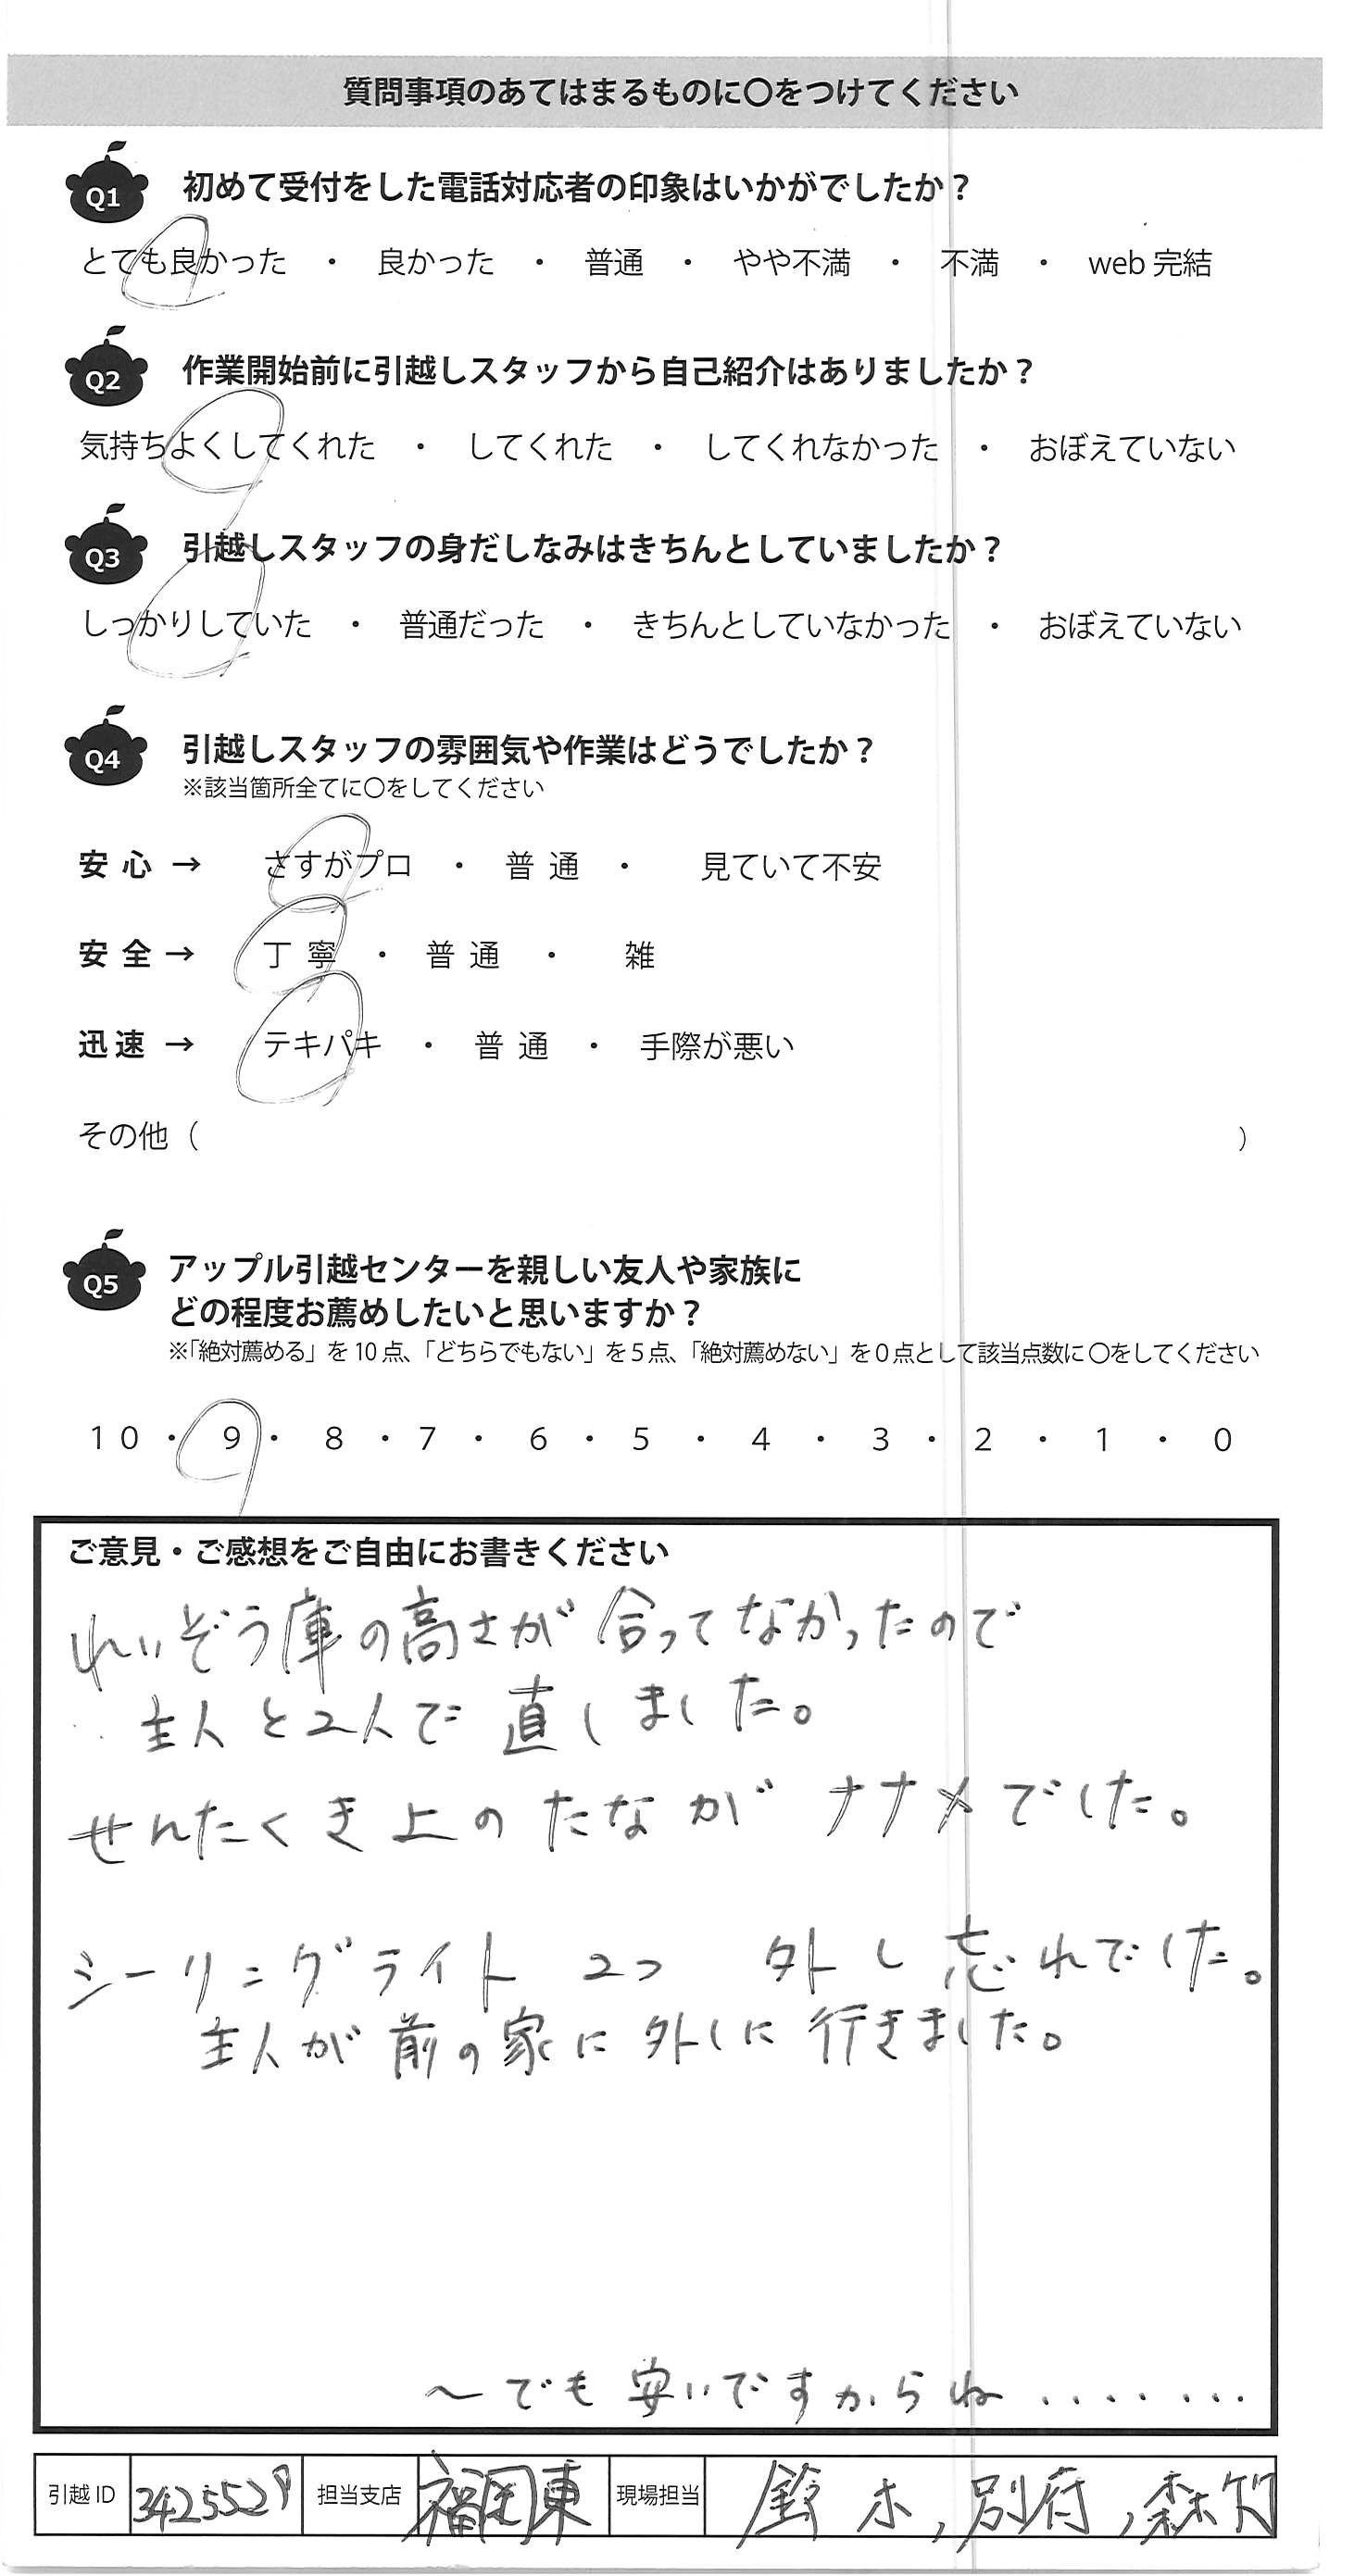 質問事項のあてはまるものに〇をつけてください
Q1 初めて受付をした電話対応者の印象はいかがでしたか？
とても良かった ・ 良かった ・ 普通 ・ やや不満 ・ 不満 ・ web 完結
Q2 作業開始前に引越しスタッフから自己紹介はありましたか？
気持ちよくしてくれた ・ してくれた ・ してくれなかった ・ おぼえていない
Q3 引越しスタッフの身だしなみはきちんとしていましたか？
しっかりしていた ・ 普通だった ・ きちんとしていなかった ・ おぼえていない
Q4 引越しスタッフの雰囲気や作業はどうでしたか？
※該当箇所全てに〇をしてください
安心 → さすがプロ ・ 普通 ・ 見ていて不安
安全 → 丁寧 ・ 普通 ・ 雑
迅速 → テキパキ ・ 普通 ・ 手際が悪い
その他（ ）
Q5 アップル引越センターを親しい友人や家族に
どの程度お薦めしたいと思いますか？
※「絶対薦める」を10点、「どちらでもない」を5点、「絶対薦めない」を0点として該当点数に〇をしてください
10 ・ 9 ・ 8 ・ 7 ・ 6 ・ 5 ・ 4 ・ 3 ・ 2 ・ 1 ・ 0
ご意見・ご感想をご自由にお書きください
れいぞう庫の高さが合ってなかったので
主人と2人で直しました。
せんたくき上のたながナナメでした。
シーリングライト 2つ 外し忘れでした。
主人が前の家に外しに行きました。
～でも安いですからね‥‥‥‥
引越ID 3425529 担当支店 福岡東 現場担当 鈴木,別府,森竹